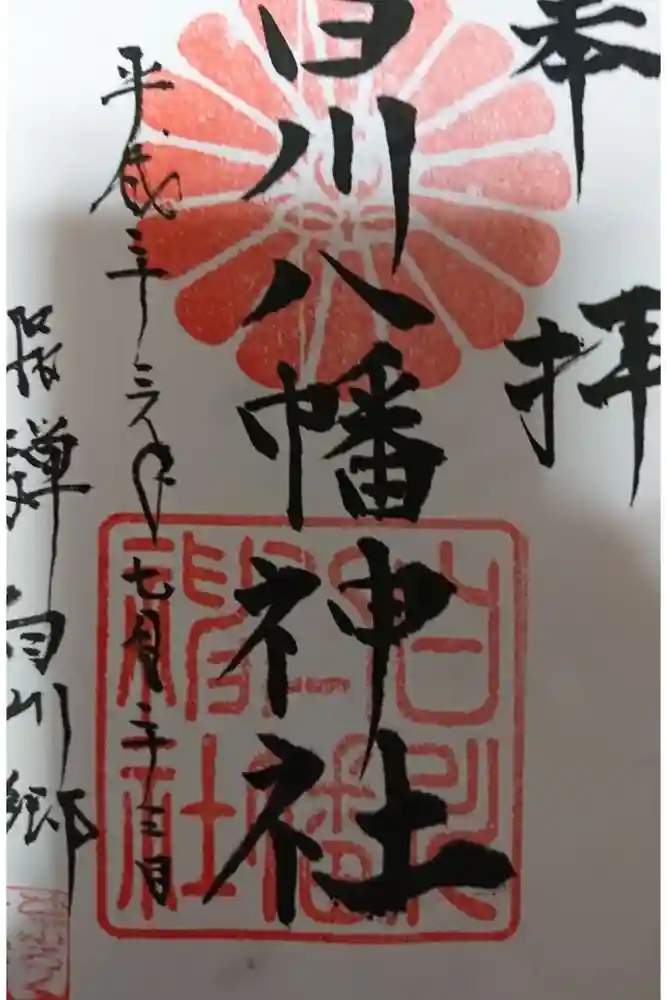 奉拝
白川八幡神社
平成三十年七月二十三日
飛騨白川郷
白川八幡神社